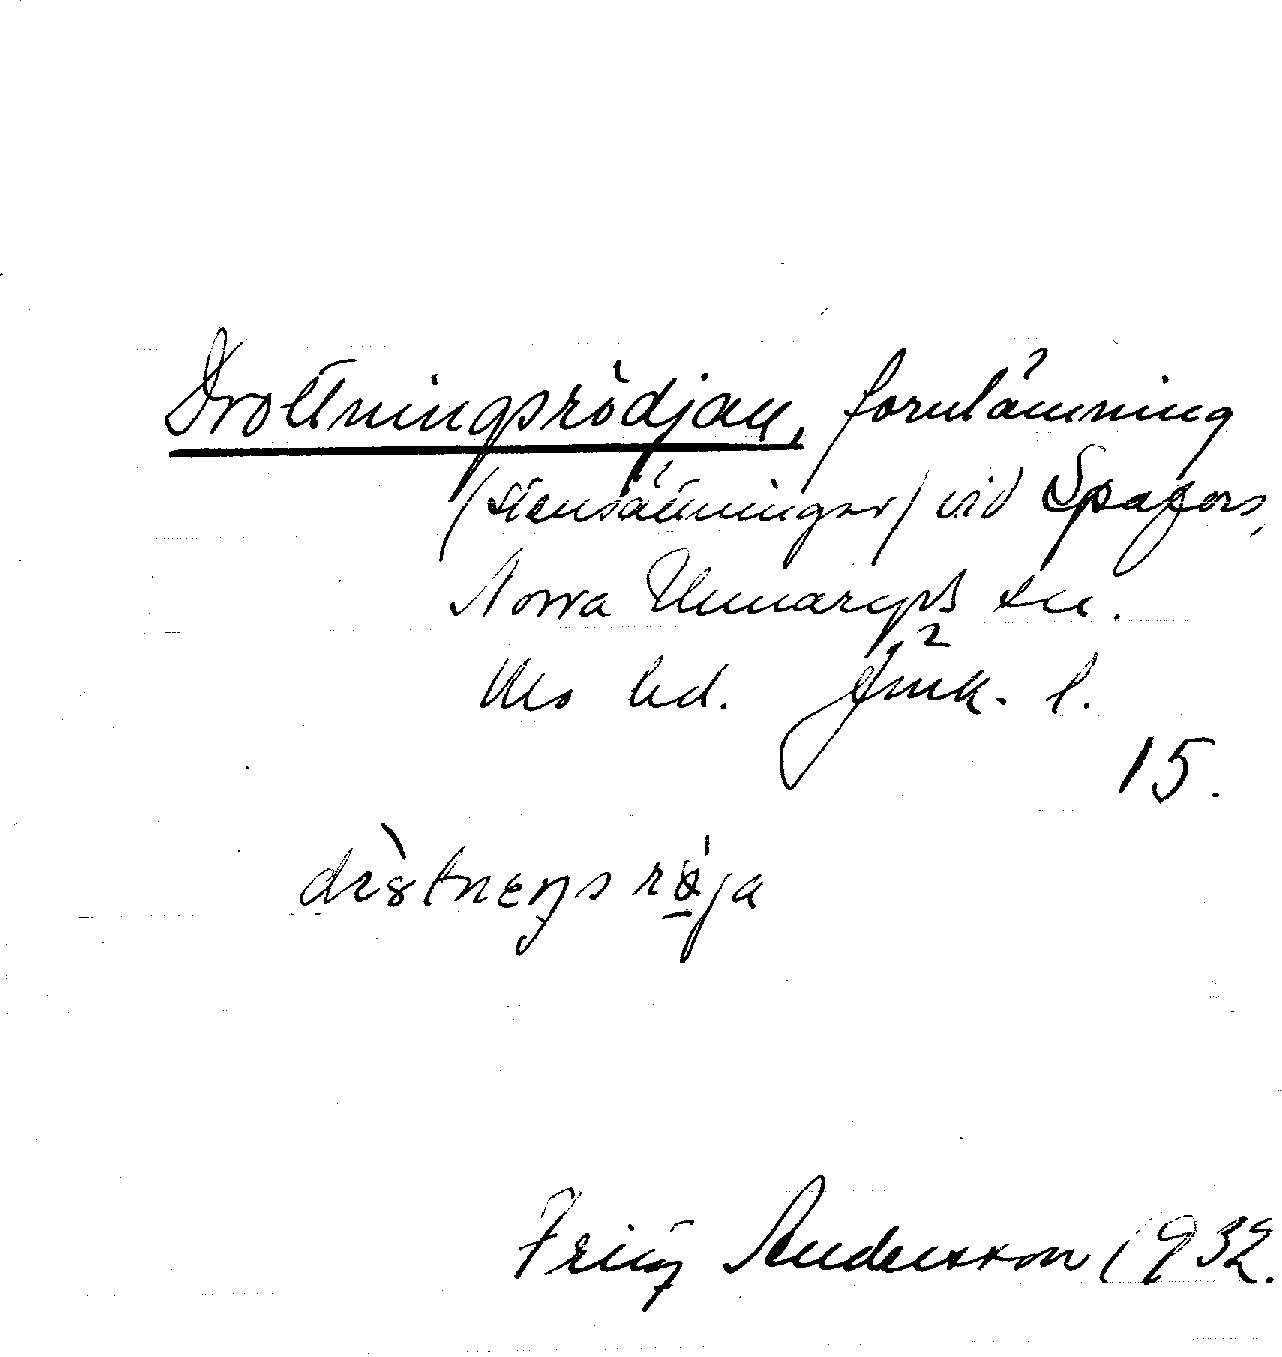 Drottningsrödjan, fornlämning
(stensättningar) vid Spafors,
Norra Unnaryds sn.
Mo hd. Jönk. l.
15.
Fritz Andersson 1932.